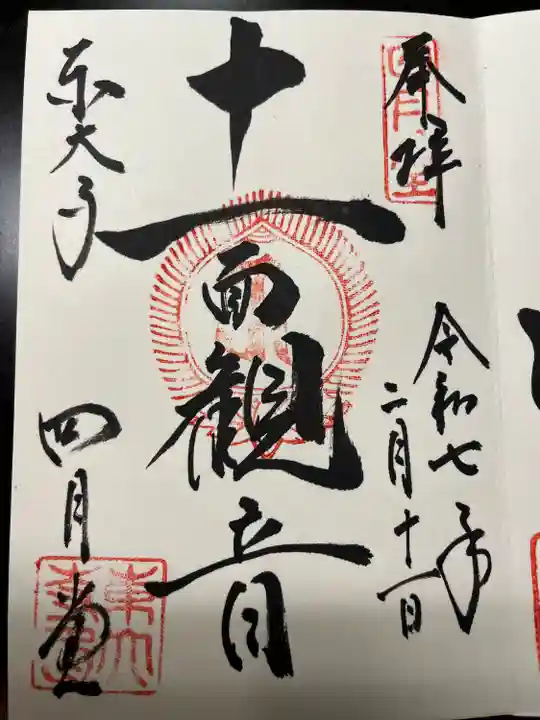 奉拝
四月堂
令和七年
二月十一日
十一面観音
東大寺
四月堂